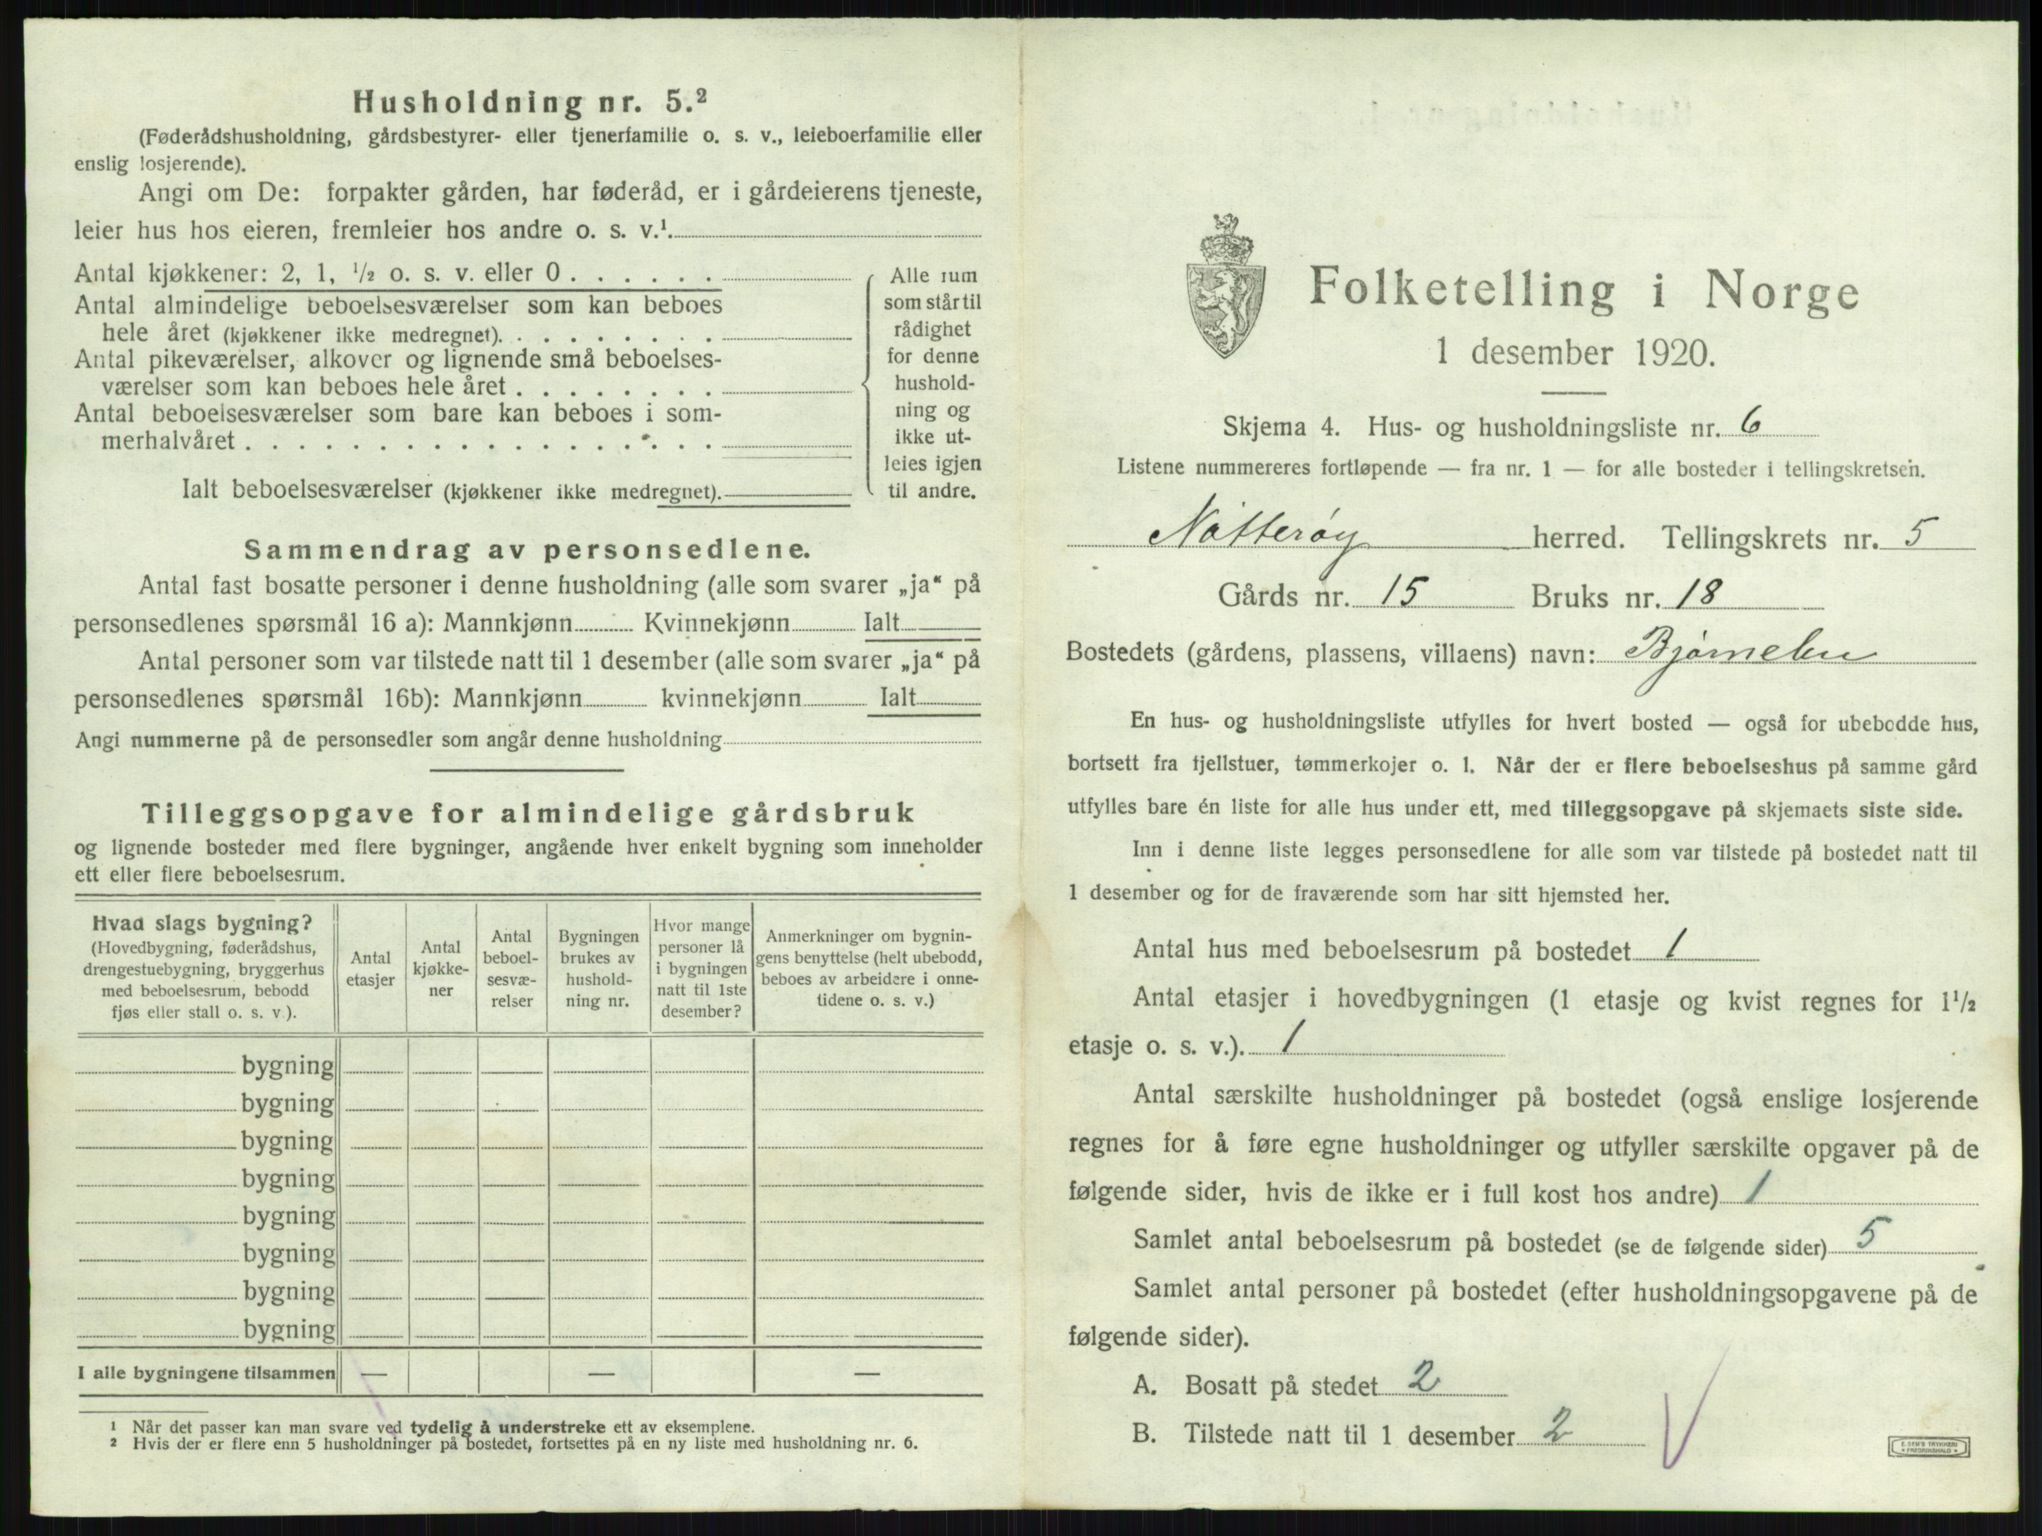 Husholdning nr. 5.²
(Føderådshusholdning, gårdsbestyrer- eller tjenerfamilie o. s. v., leieboerfamilie eller
enslig losjerende).
Angi om De: forpakter gården, har føderåd, er i gårdeierens tjeneste,
leier hus hos eieren, fremleier hos andre o. s. v.¹.
Antal kjøkkener: 2, 1, ½ o. s. v. eller 0 . . . . . .
Antal almindelige beboelsesværelser som kan beboes
hele året (kjøkkener ikke medregnet). . . . . . . . .
Antal pikeværelser, alkover og lignende små beboelses-
værelser som kan beboes hele året . . . . . . . .
Antal beboelsesværelser som bare kan beboes i som-
merhalvåret . . . . . . . . . . . . . . . . . .
Ialt beboelsesværelser (kjøkkener ikke medregnet).
Alle rum
som står til
rådighet
for denne
hushold-
ning og
ikke ut-
leies igjen
til andre.
Sammendrag av personsedlene.
Antal fast bosatte personer i denne husholdning (alle som svarer „ja“ på
personsedlenes spørsmål 16 a): Mannkjønn Kvinnekjønn Ialt
Antal personer som var tilstede natt til 1 desember (alle som svarer „ja“ på
personsedlenes spørsmål 16b): Mannkjønn kvinnekjønn Ialt
Angi nummerne på de personsedler som angår denne husholdning
Tilleggsopgave for almindelige gårdsbruk
og lignende bosteder med flere bygninger, angående hver enkelt bygning som inneholder
ett eller flere beboelsesrum.
Hvad slags bygning?
(Hovedbygning, føderådshus,
drengestuebygning, bryggerhus
med beboelsesrum, bebodd
fjøs eller stall o. s. v ).
Antal
etasjer
Antal
kjøkke-
ner
Antal
beboel-
sesvæ-
relser
Bygningen
brukes av
hushold-
ning nr.
Hvor mange
personer lå
i bygningen
natt til 1ste
desember?
Anmerkninger om bygnin-
gens benyttelse (helt ubebodd,
beboes av arbeidere i onne-
tidene o. s. v.)
bygning
bygning
bygning
bygning
bygning
bygning
bygning
bygning
I alle bygningene tilsammen — — —
¹ Når det passer kan man svare ved tydelig å understreke ett av eksemplene.
² Hvis der er flere enn 5 husholdninger på bostedet, fortsettes på en ny liste med husholdning nr. 6.
Folketelling i Norge
1 desember 1920.
Skjema 4. Hus- og husholdningsliste nr. 6
Listene nummereres fortløpende — fra nr. 1 — for alle bosteder i tellingskretsen.
Nøtterøy herred. Tellingskrets nr. 5
Gårds nr. 15 Bruks nr. 18
Bostedets (gårdens, plassens, villaens) navn: Bjørnebu
En hus- og husholdningsliste utfylles for hvert bosted — også for ubebodde hus,
bortsett fra fjellstuer, tømmerkojer o. l. Når der er flere beboelseshus på samme gård
utfylles bare én liste for alle hus under ett, med tilleggsopgave på skjemaets siste side.
Inn i denne liste legges personsedlene for alle som var tilstede på bostedet natt til
1 desember og for de fraværende som har sitt hjemsted her.
Antal hus med beboelsesrum på bostedet 1
Antal etasjer i hovedbygningen (1 etasje og kvist regnes for 1½
etasje o. s. v.). 1
Antal særskilte husholdninger på bostedet (også enslige losjerende
regnes for å føre egne husholdninger og utfyller særskilte opgaver på de
følgende sider, hvis de ikke er i full kost hos andre) 1
Samlet antal beboelsesrum på bostedet (se de følgende sider) 5
Samlet antal personer på bostedet (efter husholdningsopgavene på de
følgende sider).
A. Bosatt på stedet 2
B. Tilstede natt til 1 desember 2
E. SEM'S TRYKKERI
FREDRIKSHALD